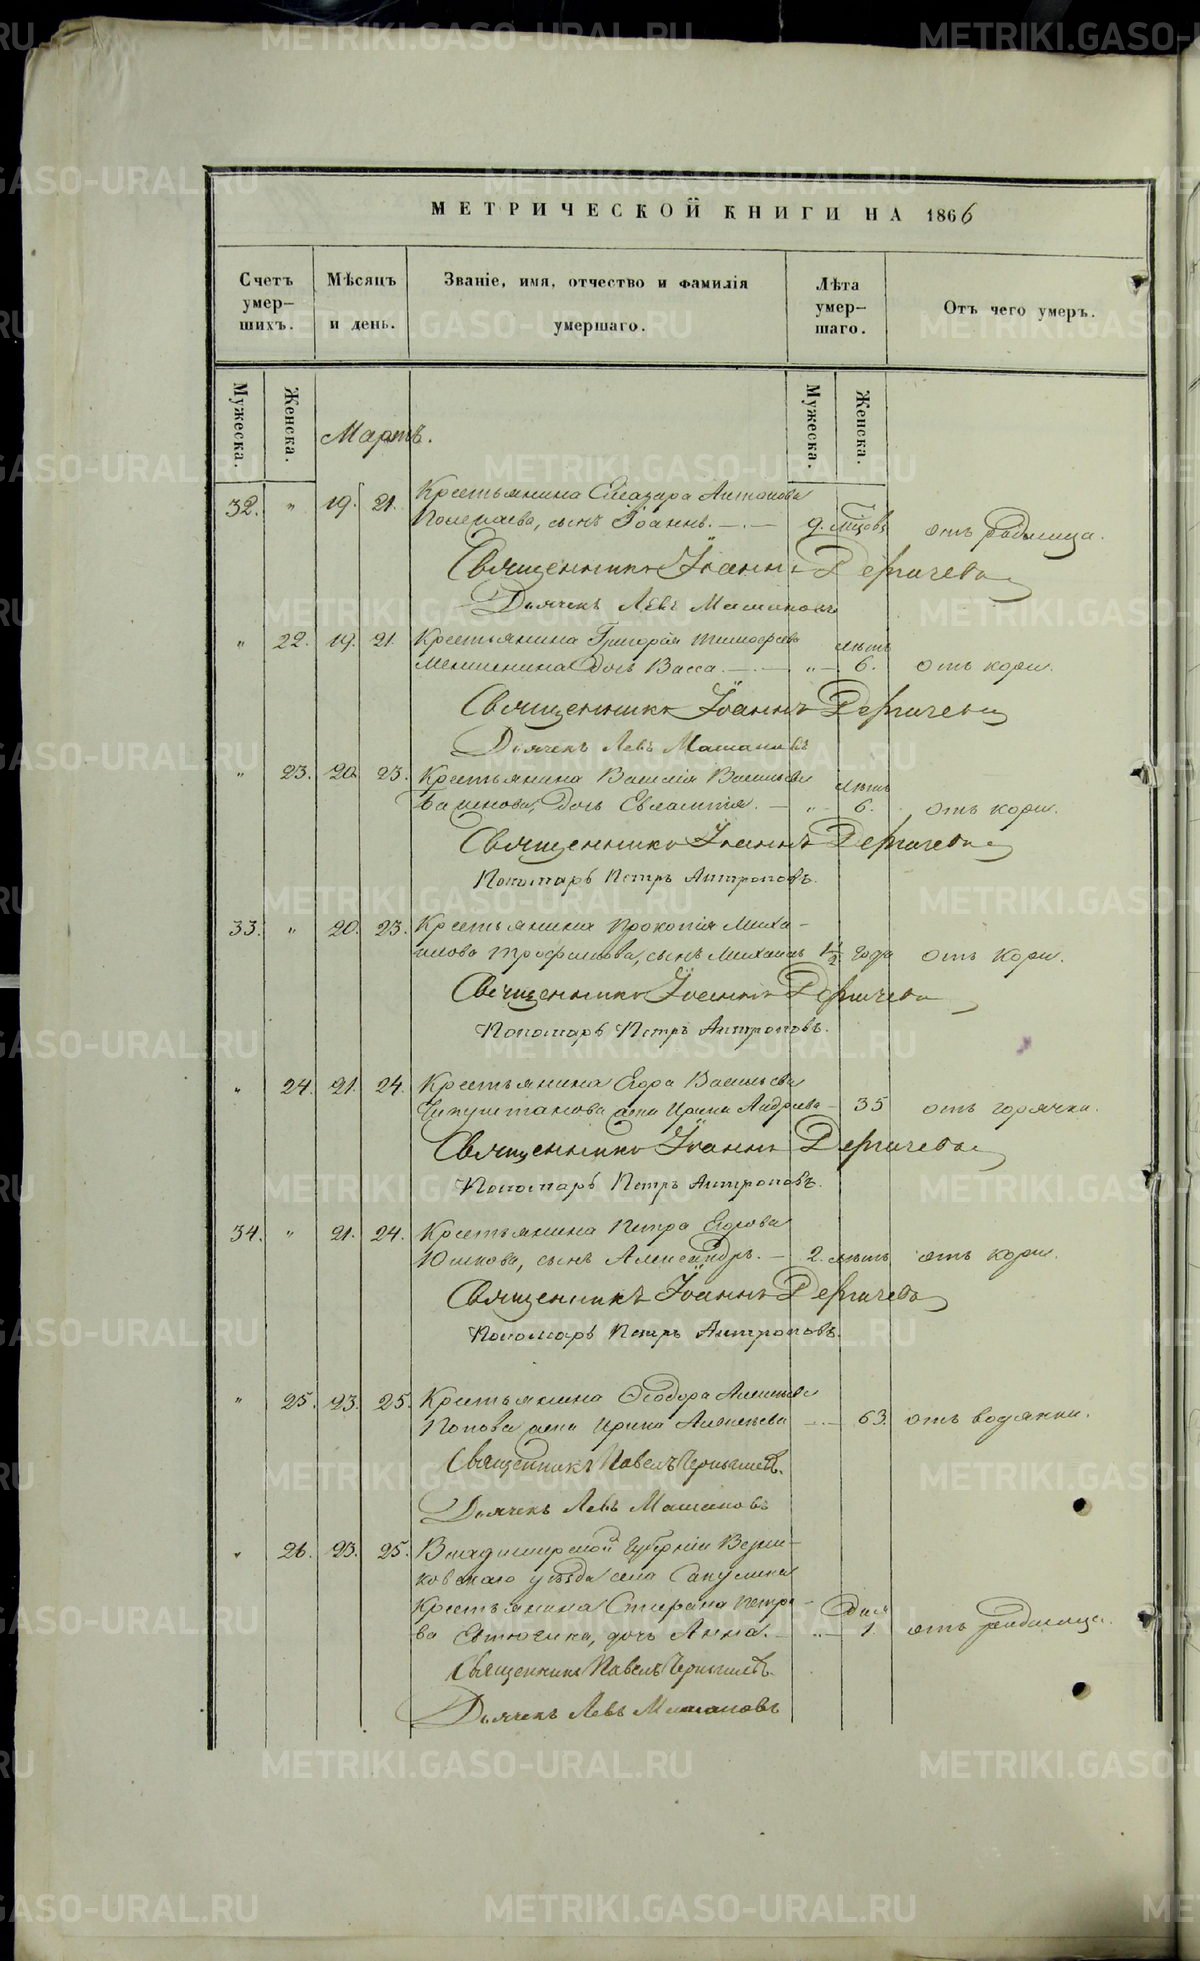 МЕТРИЧЕСКОЙ КНИГИ НА 1866
Счетъ умер-шихъ.
Мѣсяцъ и день.
Званіе, имя, отчество и фамилія умершаго.
Лѣта умер-шаго.
Отъ чего умеръ.
Мужеска.
Женска.
Мартъ.
Мужеска.
Женска.
32. " 19. 21. Крестьянина Елеазара Антонова
сынъ Іоаннъ. — 9. мѣсяцовъ отъ родимца.
Священникъ Іоаннъ Дергачевъ
Дьячекъ Левъ Машановъ
" 22. 19. 21. Крестьянина Григорія Тимофеева лѣтъ
дочь Васса. — " — 6. отъ кори.
Священникъ Іоаннъ Дергачевъ
Дьячекъ Левъ Машановъ
" 23. 20. 23. Крестьянина Василія Васильева лѣтъ
Баженова, дочь Евлампія. — " — 6. отъ кори.
Священникъ Іоаннъ Дергачевъ
Пономарь Петръ Антроповъ.
33. " 20. 23. Крестьянина Прокопія Миха-
илова Трофимова, сынъ Михаилъ 1½ года отъ кори.
Священникъ Іоаннъ Дергачевъ
Пономарь Петръ Антроповъ.
" 24. 21. 24. Крестьянина Егора Васильева
Чипуштанова жена Ирина Андреева — 35 отъ горячки.
Священникъ Іоаннъ Дергачевъ
Пономарь Петръ Антроповъ.
34. " 21. 24. Крестьянина Петра Егорова
Юшкова, сынъ Александръ. — 2. лѣтъ отъ кори.
Священникъ Іоаннъ Дергачевъ
Пономарь Петръ Антроповъ.
" 25. 23. 25. Крестьянина Ѳеодора Алексѣева
Попова жена Ирина Алексѣева — 63. отъ водянки.
Священникъ Павелъ Чернышевъ.
Дьячекъ Левъ Машановъ
" 26. 23. 25. Владимирской Губерніи Вязни-
ковскаго уѣзда села
Крестьянина Стефана Петро-
ва дочь Анна. — " — дня 1. отъ родимца.
Священникъ Павелъ Чернышевъ.
Дьячекъ Левъ Машановъ
METRIKI.GASO-URAL.RU